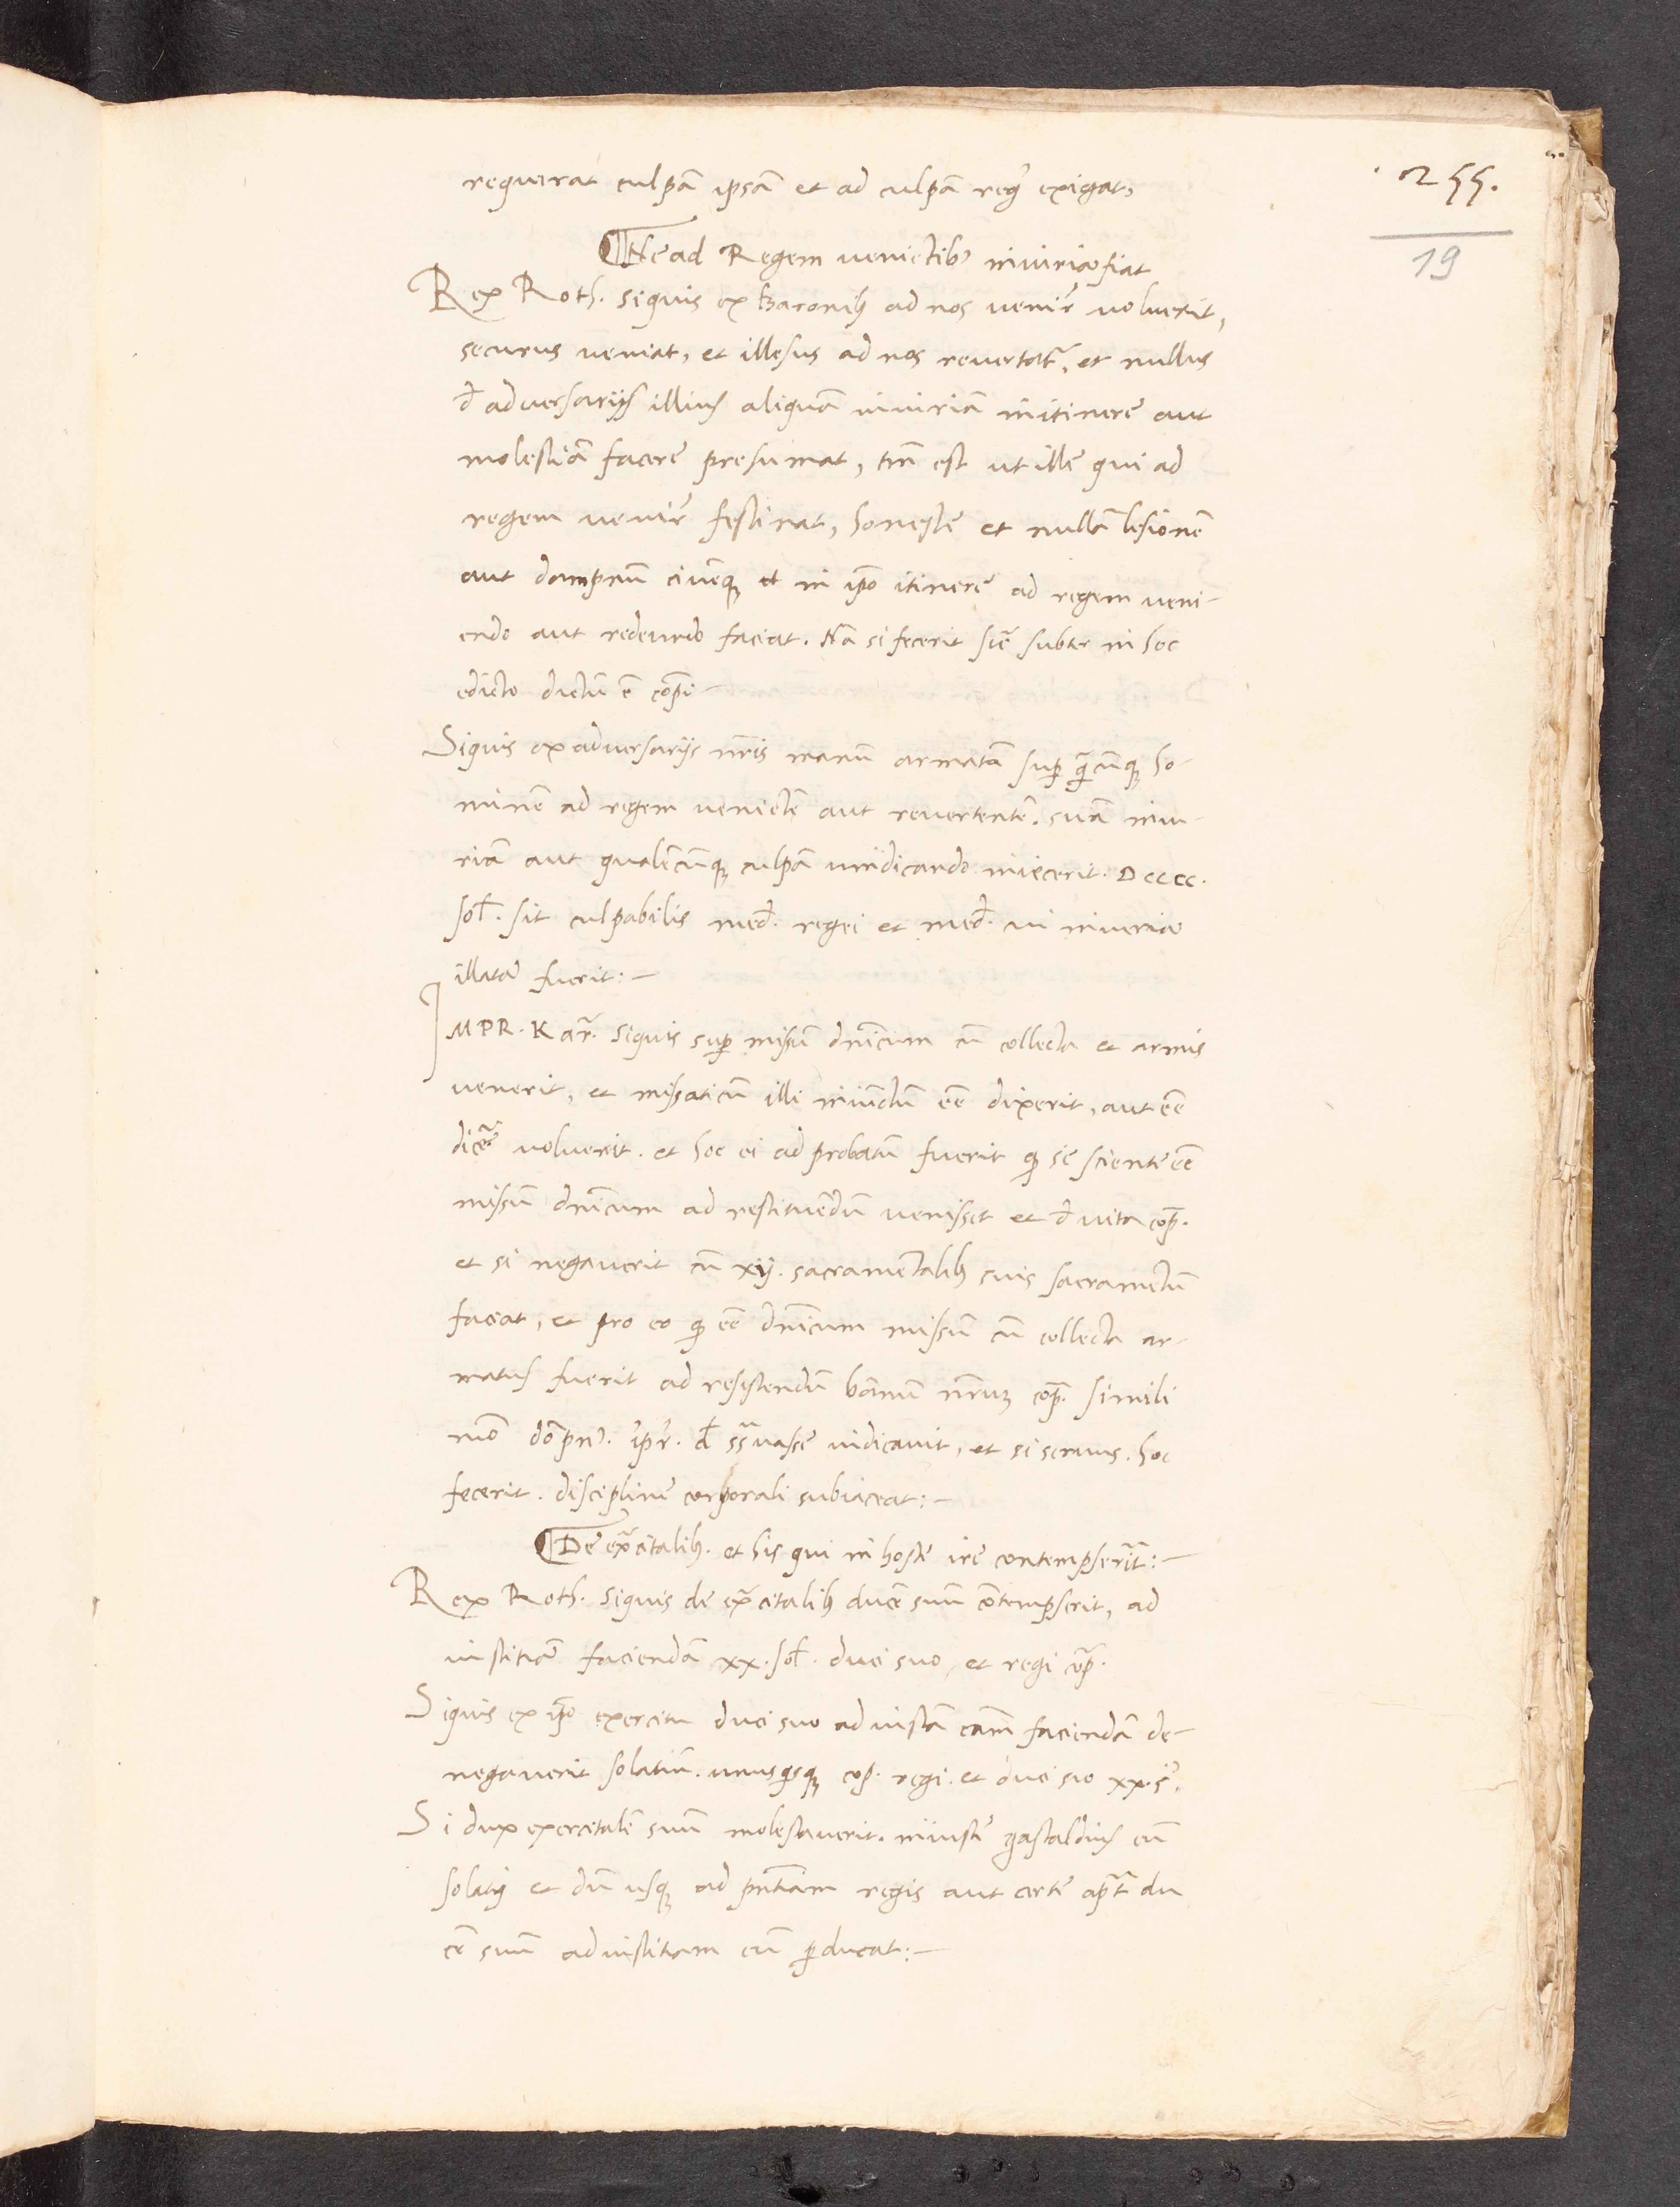 requirat culpā ipsā et ad culpā reg̃ exigat,
.255.
19
Ne ad Regem veniētibꝰ iniuria fiat
Rex Roth. Siquis ex Baronibꝫ ad nos venir̃ voluerit,
securus veniat, et illesus ad nos revertat̃, et nullus
đ adversarijs illius aliquā iniuriā in itinere aut
molestiā facere presumat, tm̄ est ut ille qui ad
regem venir̃ festinat, honeste et nullā lesionē
aut dampnū civeqꝫ et in ip̄o itinere ad regem veni-
endo aut redeundo faciat. Nā si fecerit sic̃ subter in hoc
edicto dictū ē cōp̄i-
Siquis ex adversarijs nr̄is manū armatā suꝑ q̄cūqꝫ ho-
minē ad regem veniētē aut revertentē. suā iniu-
riā aut qualēcūqꝫ culpā vindicando iniecerit. DCCCC.
sol̃. sit culpabilis med̃. regei et med̃. cui iniuria
illata fuerit:-
IMPR. Kar̃. Siquis suꝑ missū dn̄icum cū collecta et armis
venerit, et missaticū illi iniūctū eē dixerit, aut eē
dicẽ voluerit. et hoc ei ad probatū fuerit ꝙ se sciente eē
missū dn̄icum ad restituēdū venisset et đ vita cōp̄.
et si negaverit cū xij. sacramētalibꝫ suis sacramētū
faciat, et pro eo ꝙ eē dn̄icum missū cū collecta ar-
matus fuerit ad resistendū bannū nr̄uꝫ cōp̄. Simili
mō dōpnꝰ. ip̄r. đ ss̃vasse iudicavit, et si servus. hoc
fecerit. discipline corporali subiaceat:-
De ex̃citalibꝫ. et his qui in hostē ire contempserāt:-
Rex Roth. Siquis de ex̃citalibꝫ ducē suū cōtempserit, ad
iustitiā faciendā xx. sol̃. duci suo, et regi cōp̄.
Siquis ex ip̄o exercitu duci suo ad iustā cām faciendā de-
negaverit solatiū. unusqsqꝫ cōp̄. regi. et duci suo xx. s̃.
Si dux exercitalē suū molestaverit. iniuste gastaldius eū
solatij et dū usqꝫ ad pn̄tiam regis aut certe ap̃t du
cē suū ad iustitiam eū ꝑducat:-